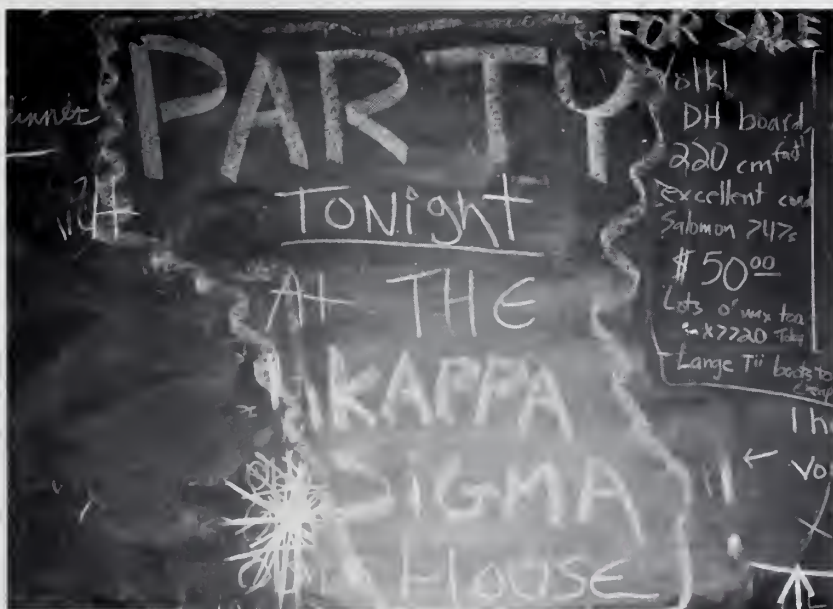 PARTY
TONight
At THE
KAPPA
SiGMA
HOUSE
FOR SALE
Völkl
DH board
220 cm fast!
excellent
Salomon 747s
$50.00
Lots o' wax too
x7720
Large Tii boots too